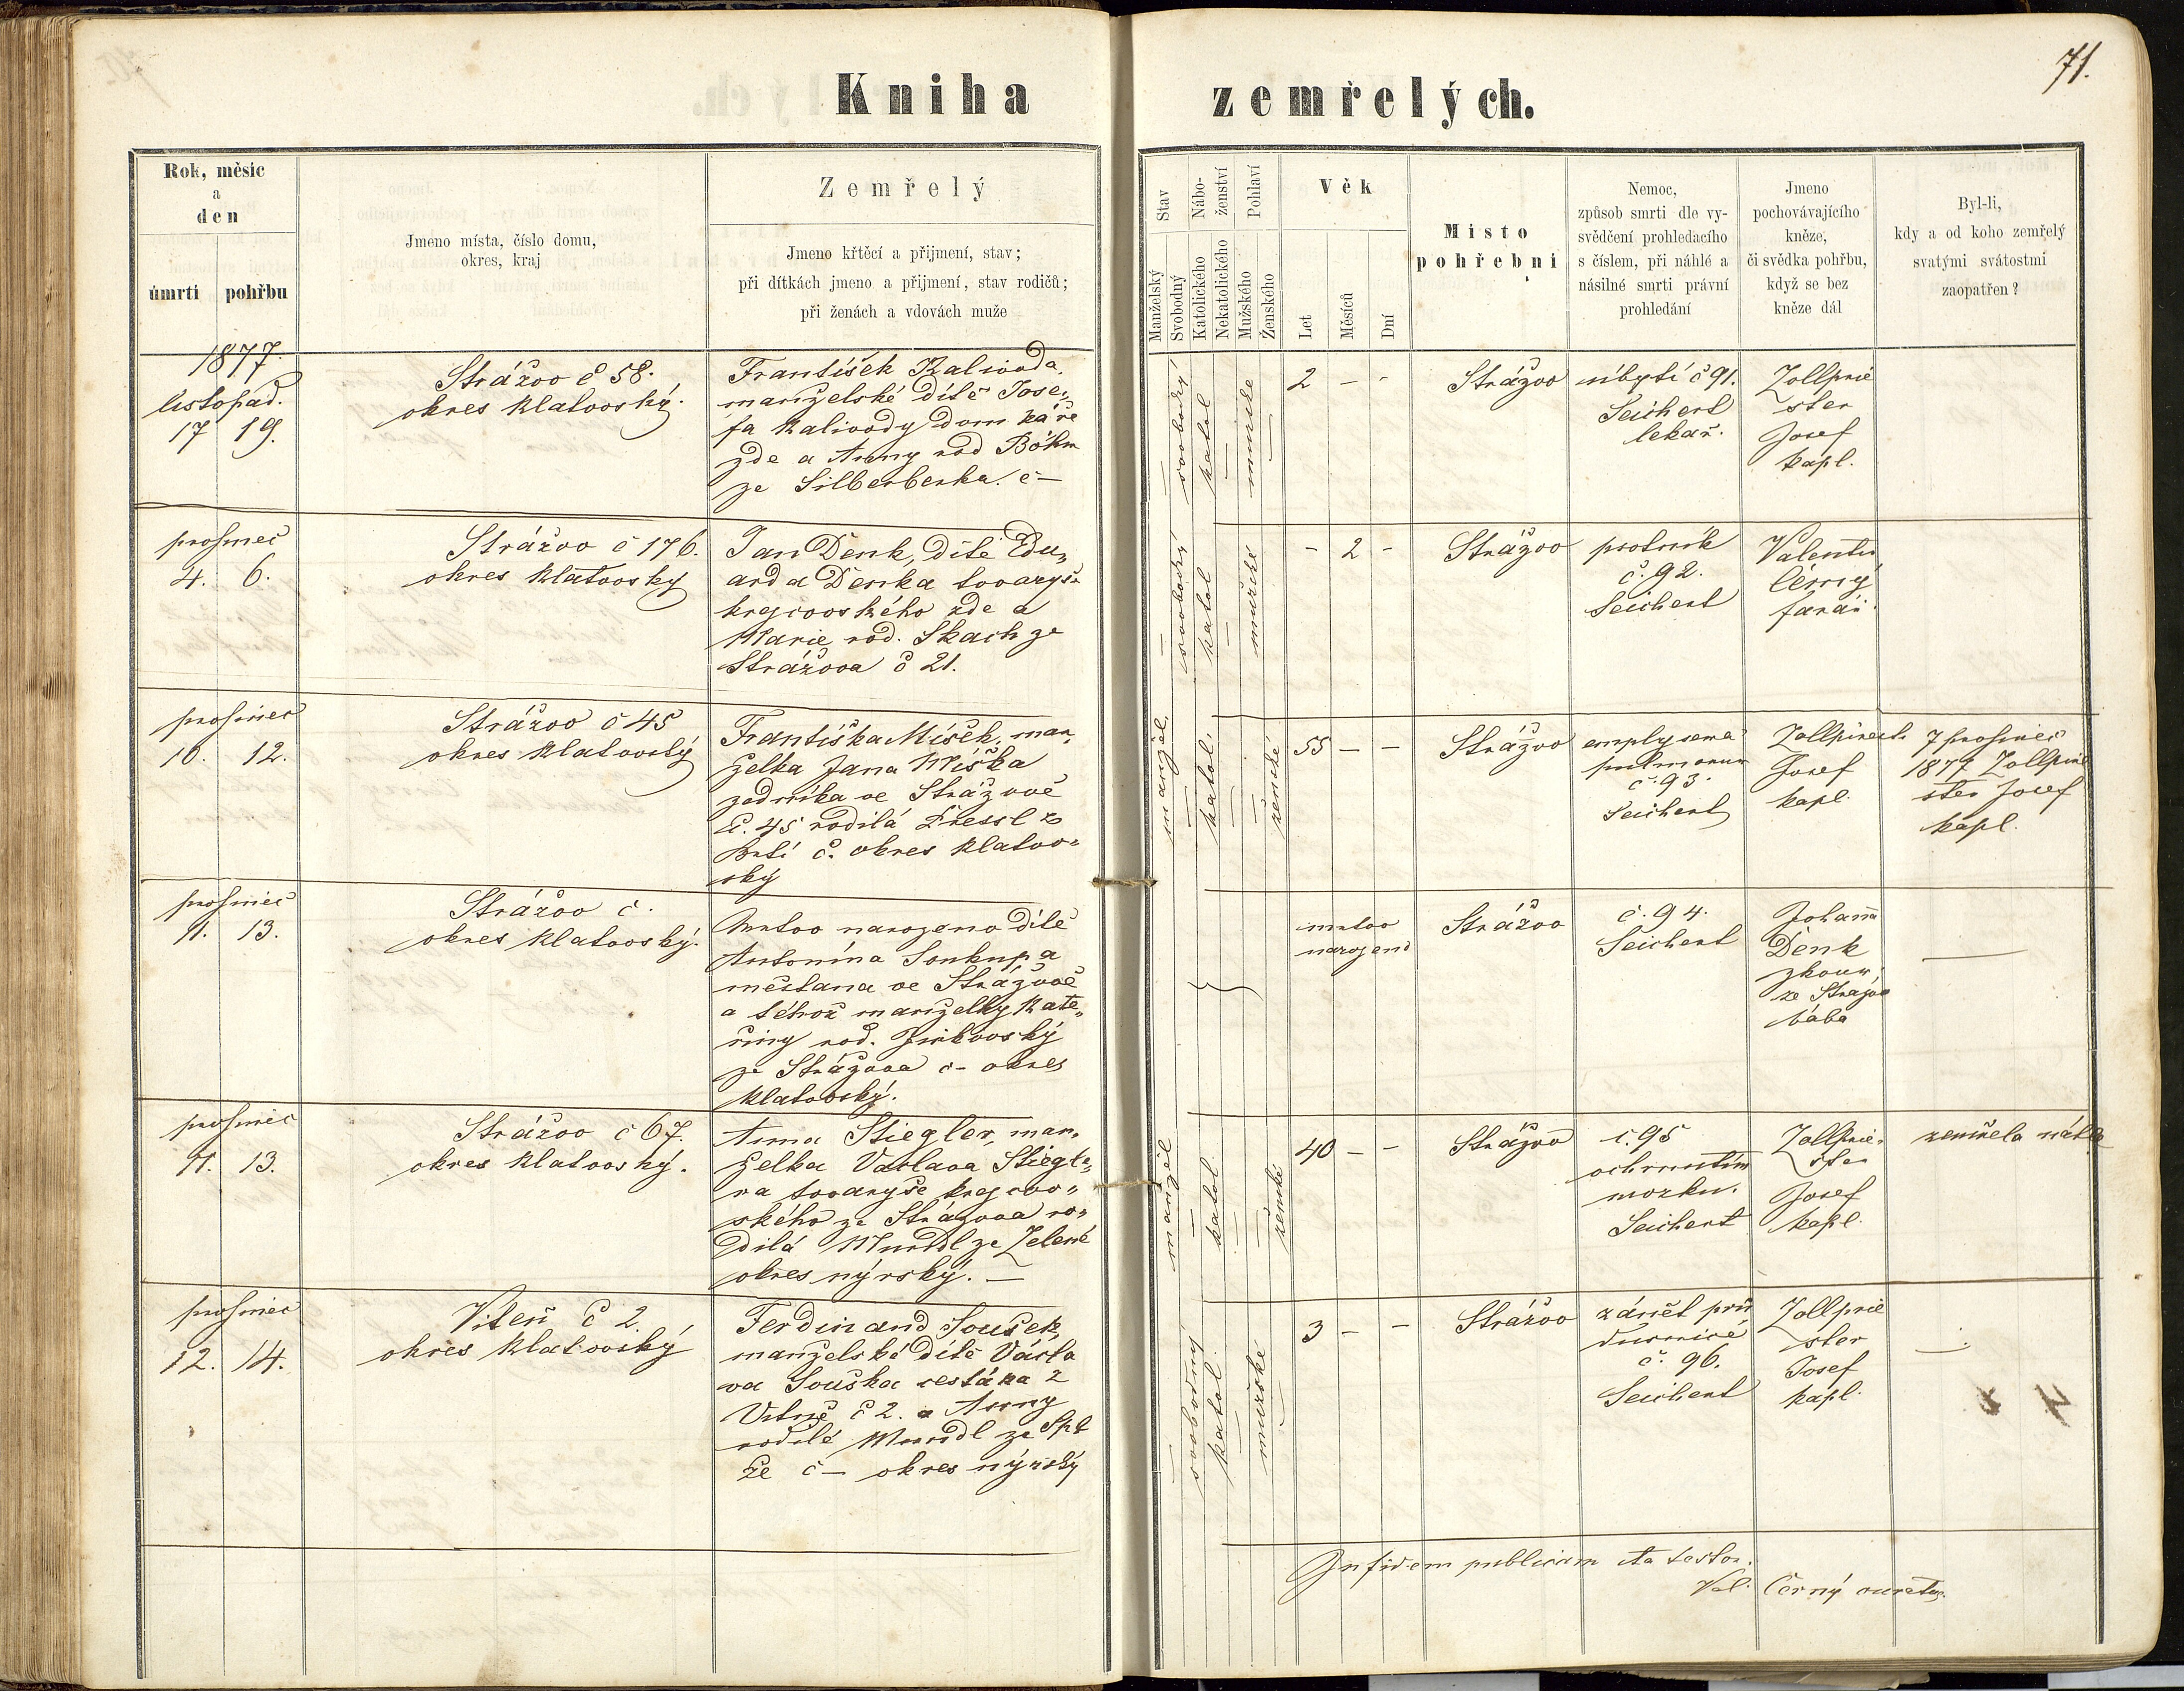 71.
Kniha zemřelých.
Rok, měsíc
a
den
úmrtí pohřbu
Jmeno místa, číslo domu,
okres, kraj
Zemřelý
Jmeno křtěcí a přijmení, stav;
při dítkách jmeno a přijmení, stav rodičů;
při ženách a vdovách muže
Stav
Manželský
Svobodný
Nábo-
ženství
Katolického
Nekatolického
Pohlaví
Mužského
Ženského
Věk
Let
Měsíců
Dní
Místo
pohřební
Nemoc,
způsob smrti dle vy-
svědčení prohledacího
s číslem, při náhlé a
násilné smrti právní
prohledání
Jmeno
pochovávajícího
kněze,
či svědka pohřbu,
když se bez
kněze dál
Byl-li,
kdy a od koho zemřelý
svatými svátostmi
zaopatřen?
1877.
listopad.
17 19.
Strážov č 58.
okres Klatovský.
František Kalivoda,
manželské dítě Jose„
fa Kalivody domkáře
zde a Anny rod Böhm
ze Silberberka. č —
svobodný
katol
mužské
2 — -
Strážov
úbytí č 91.
Seichert
lekař.
Zollprie
ster
Josef
kapl.
prosinec
4. 6.
Strážov č 176.
okres Klatovský
Jan Denk, dítě Edu„
arda Denka tovaryše
krejčovského zde a
Marie rod. Skach ze
Strážova č 21.
svobodný
katol
mužské
- 2 -
Strážov
psotník
č. 92.
Seichert
Valentin
Černý
farář.
prosinec
10. 12.
Strážov č 45
okres Klatovský
Františka Míšek, man„
želka Jana Míška
zedníka ve Strážově
č. 45 rodilá
č. okres Klatov„
ský
manžel.
katol.
ženské
55 — -
Strážov
emplysema
pulmonum
č. 93.
Seichert
Zollpriest.
Josef
kapl.
7 prosinec
1877 Zollprie
ster Josef
kapl.
prosinec
11. 13.
Strážov č.
okres Klatovský.
Mrtvo narozeno dítě
Antonína Soukupa
měšťana ve Strážově
a téhož manželky Kate„
řiny rod. Jirkovský
ze Strážova č- okres
Klatovský.
mrtvo
narozeno
Strážov
č. 94.
Seichert
Johana
Denk
zkouš.
ze Strážov
bába
prosinec
11. 13.
Strážov č 67.
okres Klatovský.
Anna Stiegler, man„
želka Václava Stiegle„
ra tovaryše krejčov„
ského ze Strážova ro„
dilá Mundl ze Zelené
okres nýrský. —
manžel
katol.
ženské
40 — -
Strážov
č. 95
ochrnutím
mozku.
Seichert
Zollprie„
ster
Josef
kapl.
zemřela náhle
prosinec
12. 14.
Viteň č 2.
okres Klatovský
Ferdinand Soušek,
manželské dítě Václa
va Souška cestáka z
Vitně č 2. a Anny
rodilé Mundl ze
že č — okres nýrský
svobodný
katol.
mužské
3 — -
Strážov
zánět prů
dušnice
č. 96.
Seichert
Zollprie
ster
Josef
kapl.
In fidem publicam ita testor.
Val. Černý curatus.